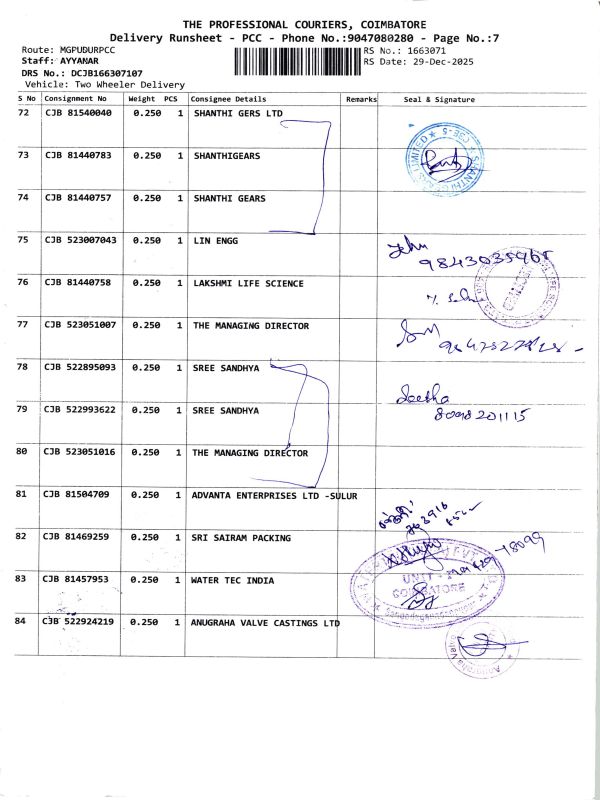 THE PROFESSIONAL COURIERS, COIMBATORE
Delivery Runsheet - PCC - Phone No.:9047080280 - Page No.:7
Route: MGPUDURPCC
RS No.: 1663071
Staff: AYYANAR
RS Date: 29-Dec-2025
DRS No.: DCJB166307107
Vehicle: Two Wheeler Delivery
S No Consignment No Weight PCS Consignee Details Remarks Seal & Signature
72 CJB 81540040 0.250 1 SHANTHI GERS LTD
73 CJB 81440783 0.250 1 SHANTHIGEARS
74 CJB 81440757 0.250 1 SHANTHI GEARS
75 CJB 523007043 0.250 1 LIN ENGG
9843035968
76 CJB 81440758 0.250 1 LAKSHMI LIFE SCIENCE
77 CJB 523051007 0.250 1 THE MANAGING DIRECTOR
78 CJB 522895093 0.250 1 SREE SANDHYA
79 CJB 522993622 0.250 1 SREE SANDHYA
8098201115
80 CJB 523051016 0.250 1 THE MANAGING DIRECTOR
81 CJB 81504709 0.250 1 ADVANTA ENTERPRISES LTD -SULUR
82 CJB 81469259 0.250 1 SRI SAIRAM PACKING
83 CJB 81457953 0.250 1 WATER TEC INDIA
UNIT
COIMBATORE
84 CJB 522924219 0.250 1 ANUGRAHA VALVE CASTINGS LTD